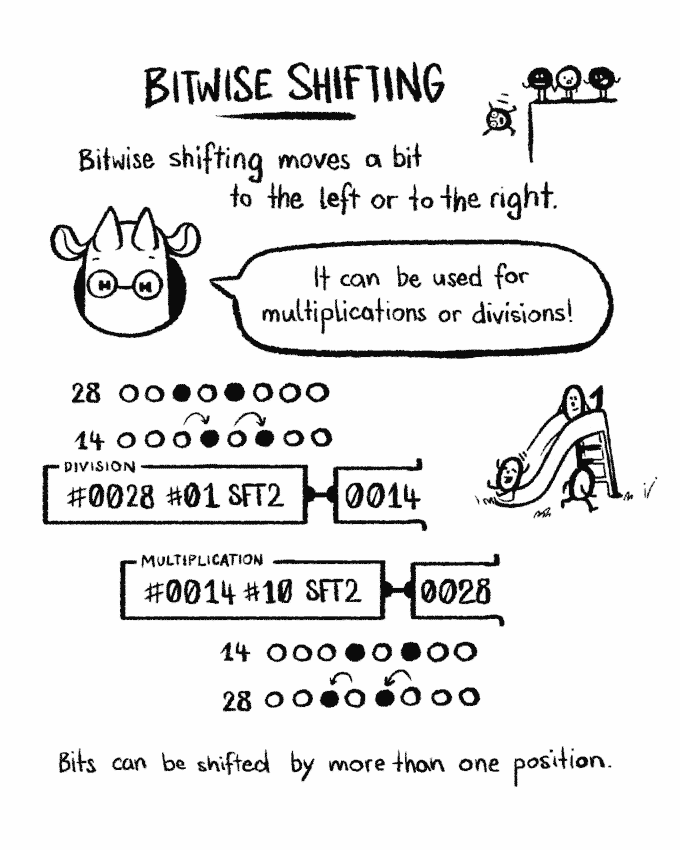 BITWISE SHIFTING
Bitwise shifting moves a bit
to the left or to the right.
It can be used for
multiplications or divisions!
28
14
DIVISION
#0028 #01 SFT2 0014
1
MULTIPLICATION
#0014 #10 SFT2 0028
14
28
Bits can be shifted by more than one position.